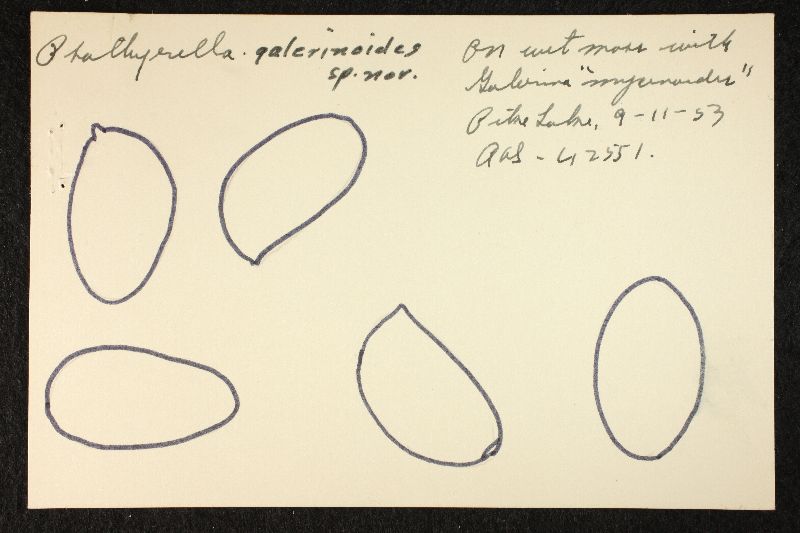 Psathyrella galerinoides
sp. nov.
On wet moss with
Galerina "mycenoides"
Pike Lake, 9-11-53
AHS - 42551.